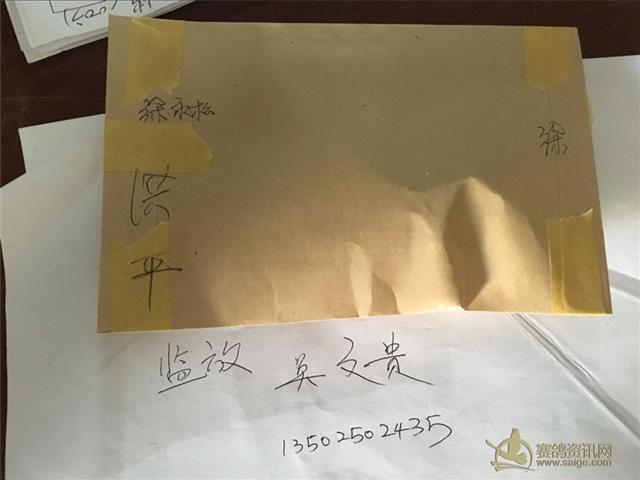 徐永松
徐
洪
平
监放 吴文贵
13502502435
赛鸽资讯网
www.saige.com